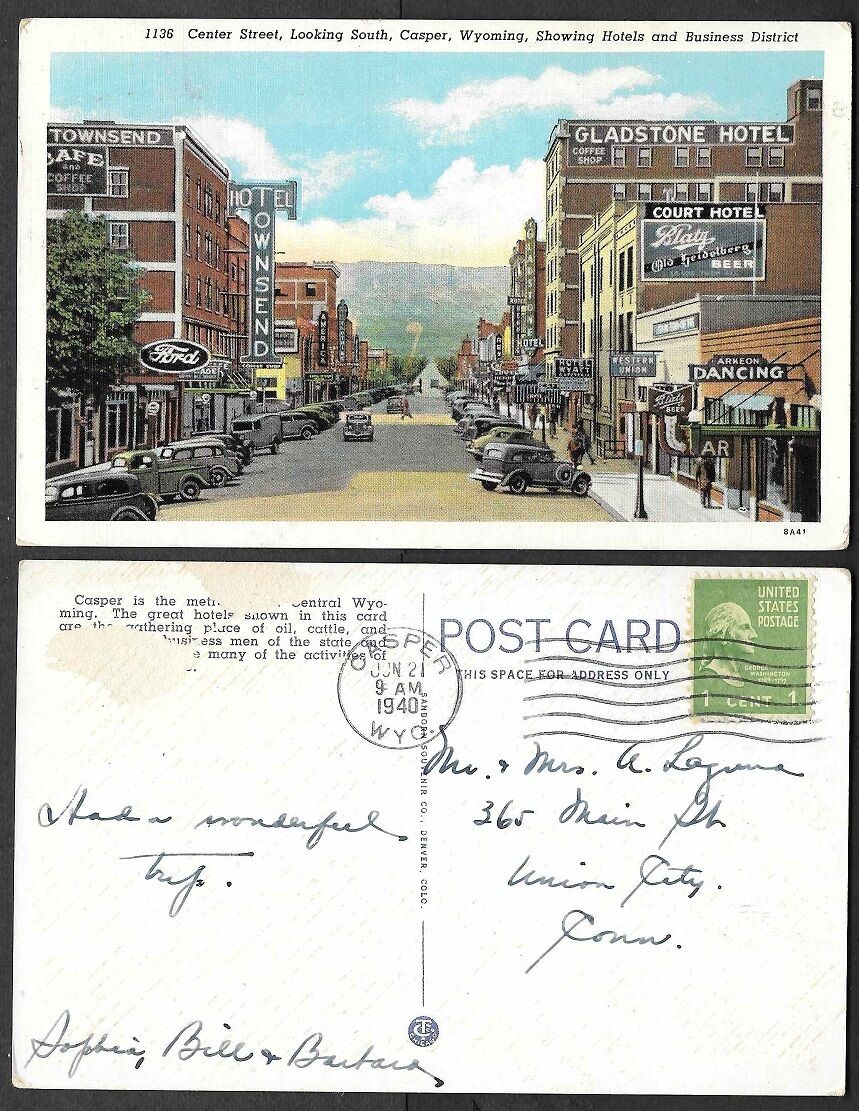 1136 Center Street, Looking South, Casper, Wyoming, Showing Hotels and Business District
TOWNSEND
CAFE
and
COFFEE
SHOP
HOTEL
TOWNSEND
COFFEE SHOP
Ford
AMERICA
GLADSTONE HOTEL
COFFEE
SHOP
COURT HOTEL
Blatz
Old Heidelberg
BEER
GLADSTONE
HOTEL
WESTERN
UNION
Blatz
BEER
ARKEON
DANCING
AR
8A41
Casper is the met Central Wyo-
ming. The great hotels shown in this card
are the gathering place of oil, cattle, and
business men of the state and
many of the activities of
POST CARD
THIS SPACE FOR ADDRESS ONLY
CASPER
JUN 21
9 AM
1940
WYO.
UNITED
STATES
POSTAGE
GEORGE
WASHINGTON
1789-1797
1 CENT 1
SANBORN SOUVENIR CO., DENVER, COLO.
Had a wonderful
trip.
Sophia, Bill & Barbara
Mr. & Mrs. A. Laguna
365 Main St.
Union City.
Conn.
CT
CHICAGO